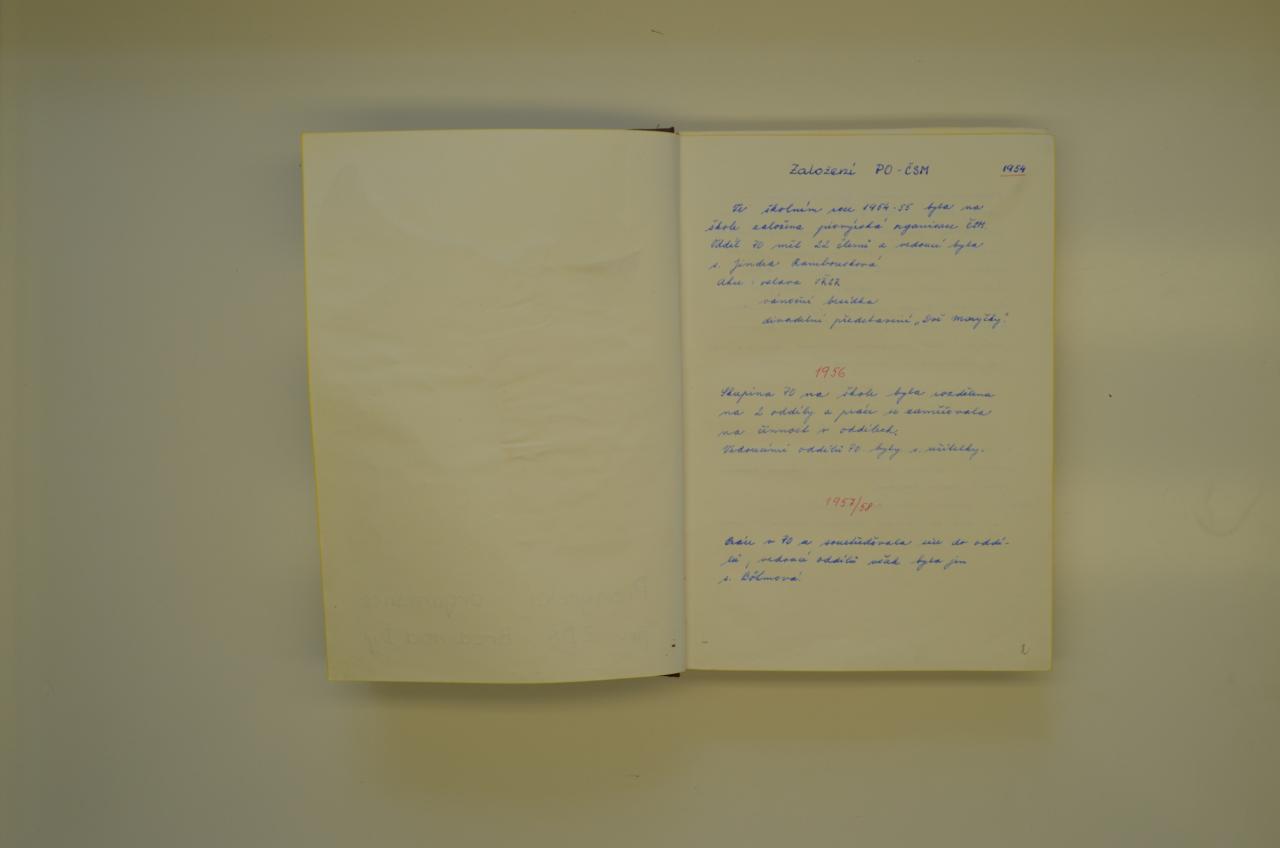 Založení PO - ČSM 1954
Ve školním roce 1954-55 byla na
škole založena pionýrská organisace ČSM.
Oddíl PO měl 22 členů a vedoucí byla
s. Jindra Rambousková
Akce: oslava VŘSR
vánoční besídka
divadelní představení „Dvě Maryčky".
1956
Skupina PO na škole byla rozdělena
na 2 oddíly a práce se zaměřovala
na činnost v oddílech.
Vedoucími oddílů PO byly s. učitelky.
1957/58
Práce v PO a soustřeďovala více do oddí-
lů, vedoucí oddílů však byla jen
s. Böhmová